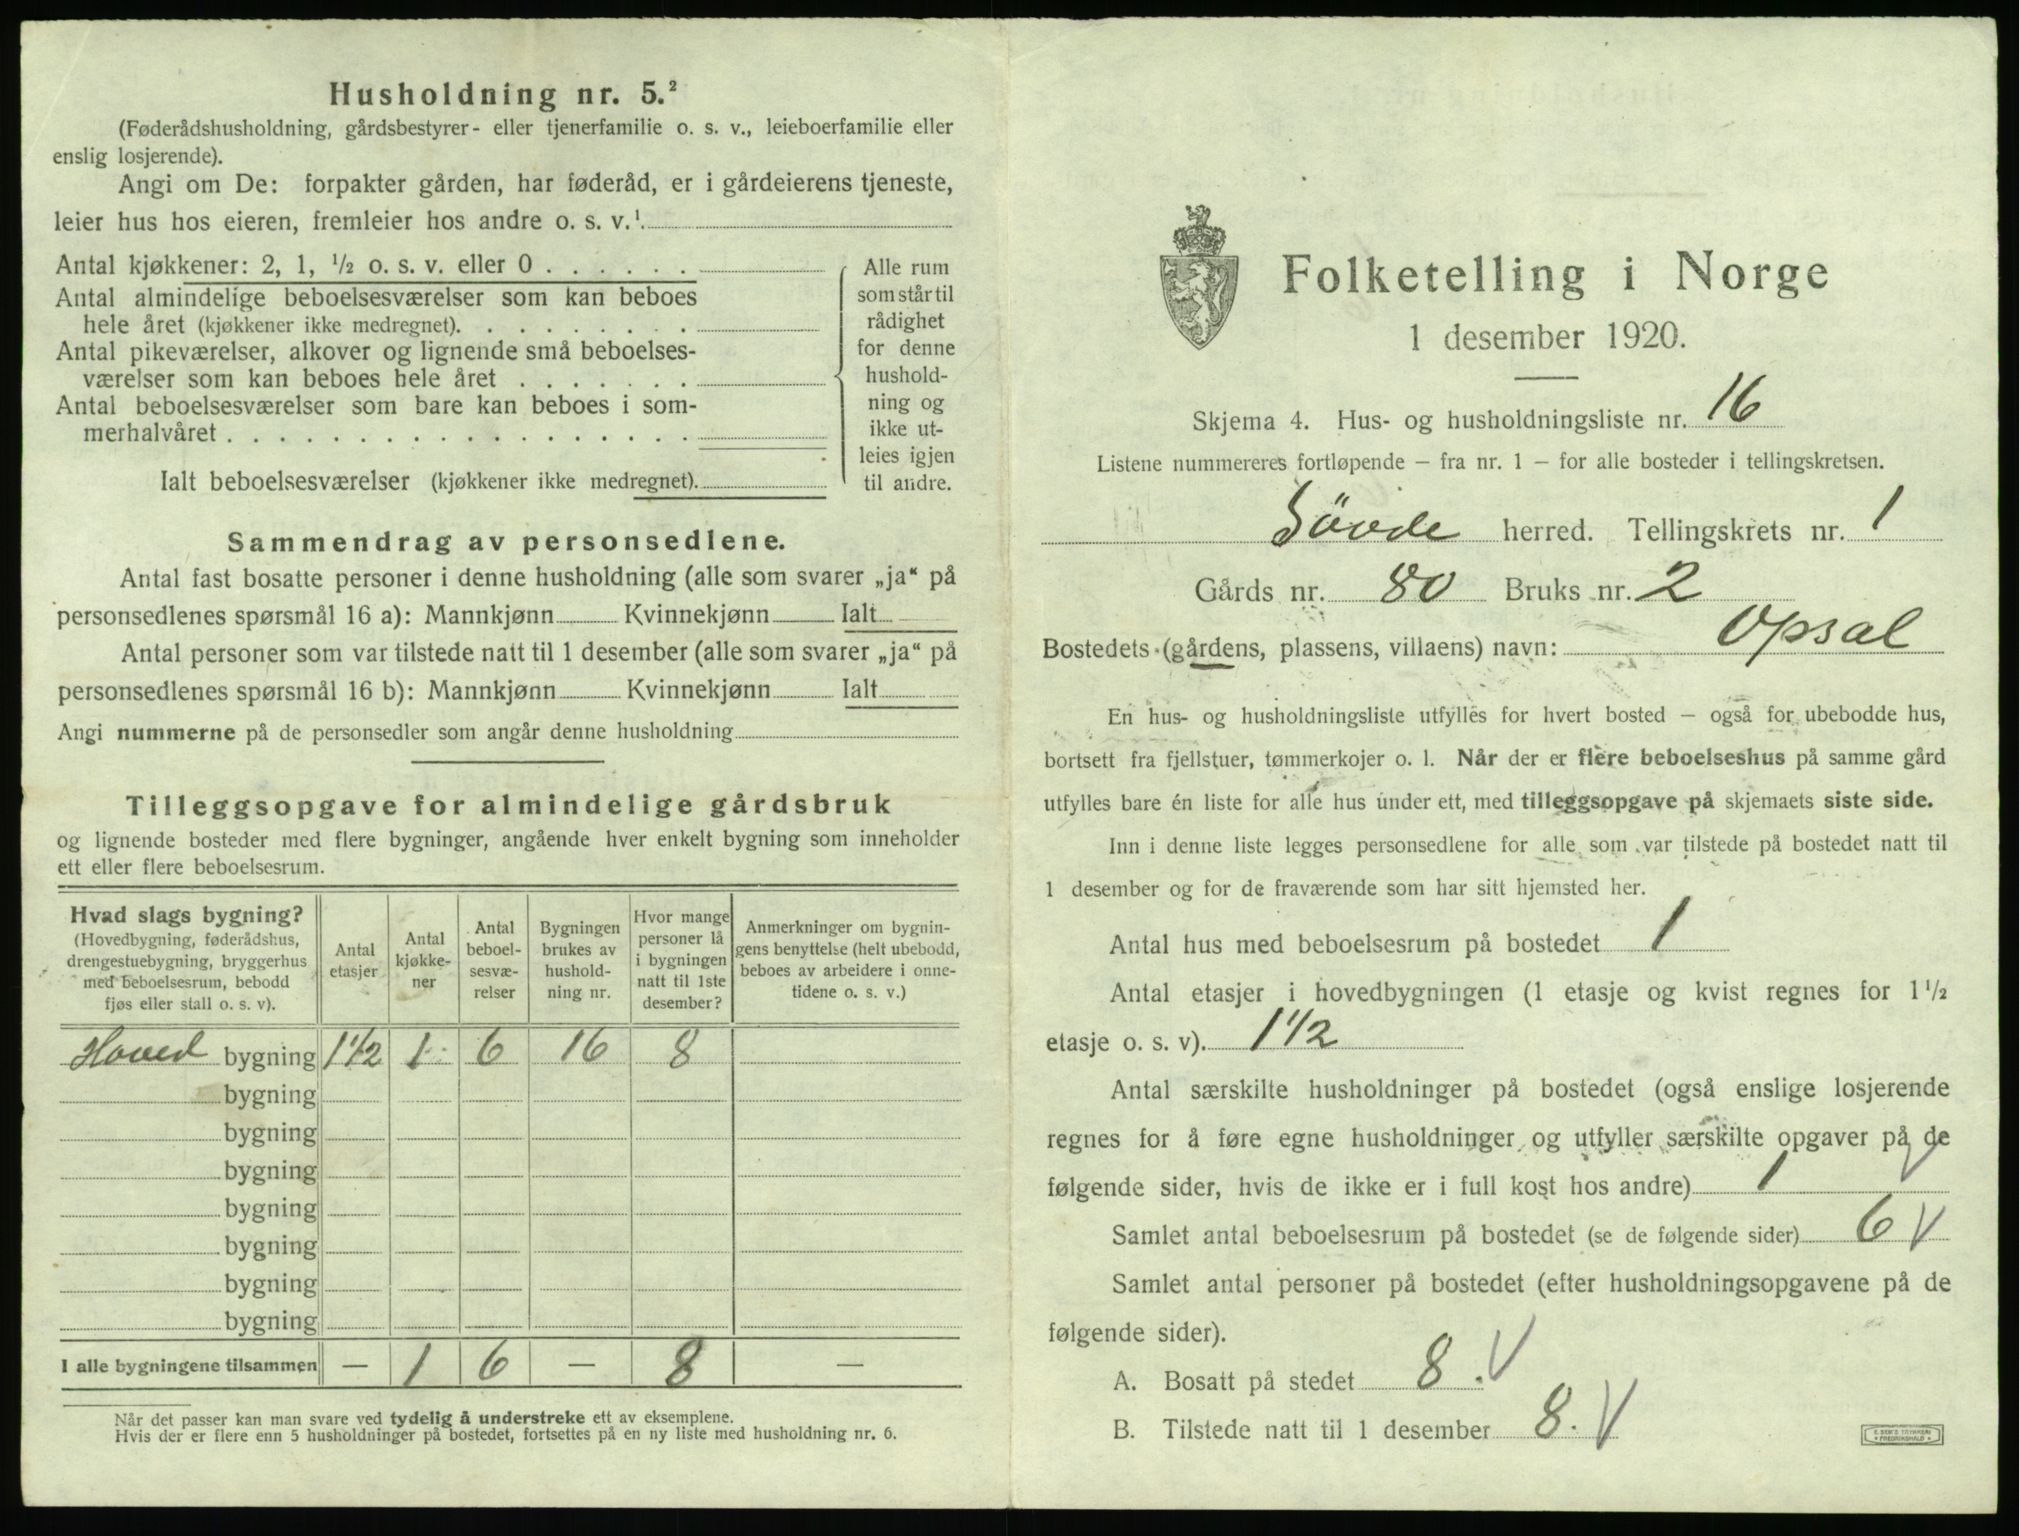 Husholdning nr. 5.²
(Føderådshusholdning, gårdsbestyrer- eller tjenerfamilie o. s. v., leieboerfamilie eller
enslig losjerende).
Angi om De: forpakter gården, har føderåd, er i gårdeierens tjeneste,
leier hus hos eieren, fremleier hos andre o. s. v.¹
Antal kjøkkener: 2, 1, ½ o. s. v. eller 0 . . . . . .
Antal almindelige beboelsesværelser som kan beboes
hele året (kjøkkener ikke medregnet). . . . . . . . .
Antal pikeværelser, alkover og lignende små beboelses-
værelser som kan beboes hele året . . . . . . .
Antal beboelsesværelser som bare kan beboes i som-
merhalvåret . . . . . . . . . . . . . . . . . .
Ialt beboelsesværelser (kjøkkener ikke medregnet).
Alle rum
som står til
rådighet
for denne
hushold-
ning og
ikke ut-
leies igjen
til andre.
Sammendrag av personsedlene.
Antal fast bosatte personer i denne husholdning (alle som svarer „ja“ på
personsedlenes spørsmål 16 a): Mannkjønn Kvinnekjønn Ialt
Antal personer som var tilstede natt til 1 desember (alle som svarer „ja“ på
personsedlenes spørsmål 16 b): Mannkjønn Kvinnekjønn Ialt
Angi nummerne på de personsedler som angår denne husholdning
Tilleggsopgave for almindelige gårdsbruk
og lignende bosteder med flere bygninger, angående hver enkelt bygning som inneholder
ett eller flere beboelsesrum.
Hvad slags bygning?
(Hovedbygning, føderådshus,
drengestuebygning, bryggerhus
med beboelsesrum, bebodd
fjøs eller stall o. s. v).
Antal
etasjer
Antal
kjøkke-
ner
Antal
beboel-
sesvæ-
relser
Bygningen
brukes av
hushold-
ning nr.
Hvor mange
personer lå
i bygningen
natt til 1ste
desember?
Anmerkninger om bygnin-
gens benyttelse (helt ubebodd,
beboes av arbeidere i onne-
tidene o. s. v.)
Hoved bygning 1½ 1 6 16 8
bygning
bygning
bygning
bygning
bygning
bygning
bygning
I alle bygningene tilsammen — 1 6 — 8 —
Når det passer kan man svare ved tydelig å understreke ett av eksemplene.
Hvis der er flere enn 5 husholdninger på bostedet, fortsettes på en ny liste med husholdning nr. 6.
Folketelling i Norge
1 desember 1920.
Skjema 4. Hus- og husholdningsliste nr. 16
Listene nummereres fortløpende – fra nr. 1 – for alle bosteder i tellingskretsen.
Søvde herred. Tellingskrets nr. 1
Gårds nr. 80 Bruks nr. 2
Bostedets (gårdens, plassens, villaens) navn: Opsal
En hus- og husholdningsliste utfylles for hvert bosted – også for ubebodde hus,
bortsett fra fjellstuer, tømmerkojer o. l. Når der er flere beboelseshus på samme gård
utfylles bare én liste for alle hus under ett, med tilleggsopgave på skjemaets siste side.
Inn i denne liste legges personsedlene for alle som var tilstede på bostedet natt til
1 desember og for de fraværende som har sitt hjemsted her.
Antal hus med beboelsesrum på bostedet 1
Antal etasjer i hovedbygningen (1 etasje og kvist regnes for 1½
etasje o. s. v). 1½
Antal særskilte husholdninger på bostedet (også enslige losjerende
regnes for å føre egne husholdninger og utfyller særskilte opgaver på de
følgende sider, hvis de ikke er i full kost hos andre) 1 V
Samlet antal beboelsesrum på bostedet (se de følgende sider) 6 V
Samlet antal personer på bostedet (efter husholdningsopgavene på de
følgende sider).
A. Bosatt på stedet 8. V
B. Tilstede natt til 1 desember 8. V